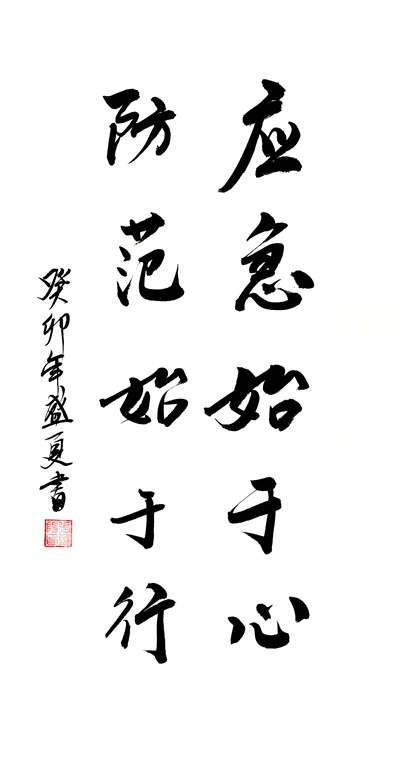 应急始于心
防范始于行
癸卯年盛夏書